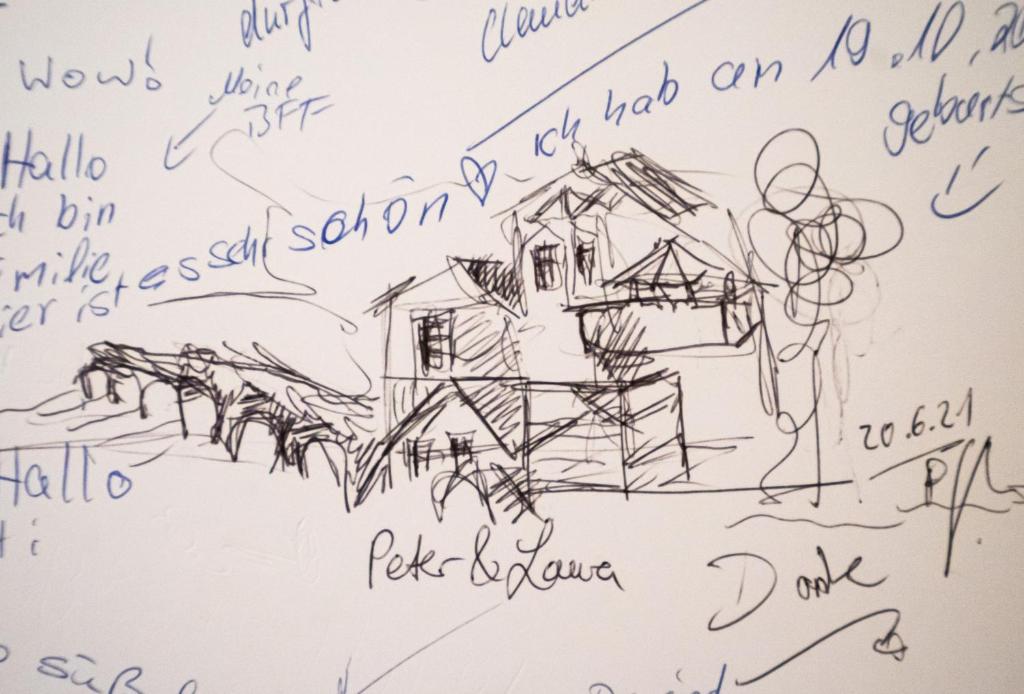 wow!
Meine
BFF
Hallo
ch bin
milie
ier ist es sehr schön ich hab am 19.10.20
geburts
Hallo
20.6.21
Peter & Laura
Danke
süß